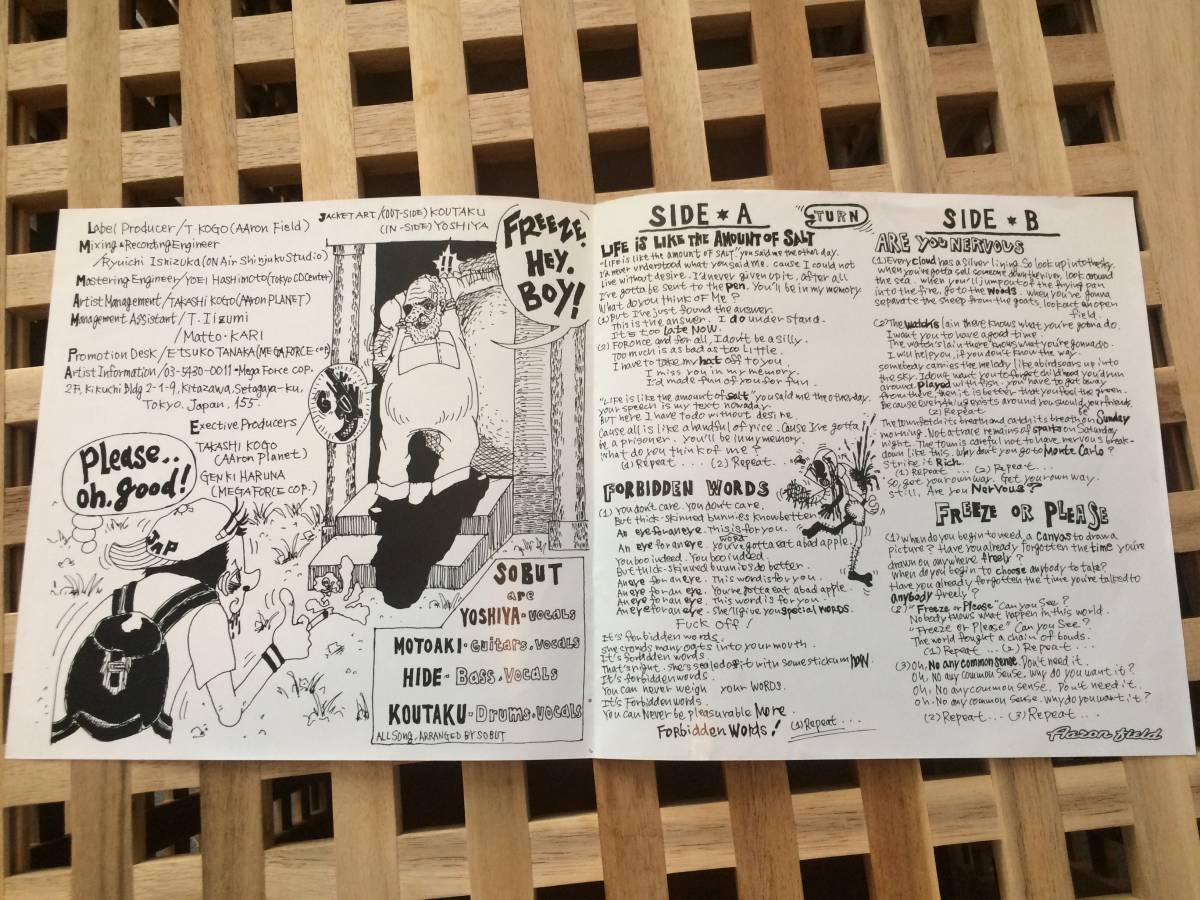 Label Producer/T. KOGO (AAron Field)
Mixing & Recording Engineer
/Ryuichi Ishizuka (ON Air Shinjuku Studio)
Mastering Engineer/YOEI HASHIMOTO (Tokyo CD Center)
Artist Management/TAKASHI KOGO (AAron PLANET)
Management Assistant/T. Iizumi
Matto·KARI
Promotion Desk/ETSUKO TANAKA (MEGAFORCE cop)
Artist Information/03-5430-0011·Mega Force cop.
2F, Kikuchi Bldg 2-1-9, Kitazawa, Setagaya-ku,
Tokyo. Japan. 155
Exective Producers
TAKASHI KOGO
(AAron Planet)
GENKI HARUNA
(MEGAFORCE COP.)
JACKET ART/(OUT-SIDE) KOUTAKU
(IN-SIDE) YOSHIYA
FREEZE.
HEY.
BOY!
Please..
oh, good!
JAP
SOBUT
are
YOSHIYA-vocals
MOTOAKI-Guitars.vocals
HIDE-Bass.Vocals
KOUTAKU-Drums.vocals
ALL SONG, ARRANGED BY SOBUT
SIDE★A
TURN
LIFE IS LIKE THE AMOUNT OF SALT
"Life is like the amount of SALT." you said me the other day.
I'd never understood what you said me. cause I could not
Live without desire. I'd never given up it, after all
I've gotta be sent to the pen. You'll be in my memory.
What do you think of Me?
(1) But I've just found the answer.
This is the answer. I do understand.
It's too Late Now.
(2) For once and for all, I don't be a silly.
Too much is as bad as too Little.
I have to take my hat off to you
I miss you in my memory.
I'd made fun of you for fun.
"Life is like the amount of salt" you said me the other day.
your speech is my text nowaday.
BUT here I have to do without desire.
Cause all is like a handful of rice. Cause I've gotta
be a prisoner. you'll be in my memory.
What do you think of me?
(1) Repeat.... (2) Repeat...
FORBIDDEN WORDS
(1) You don't care. You don't care.
But thick-skinned bunnies know better
An eye for an eye. This is for you.
An eye for an eye. You've gotta eat a bad apple.
word
You boo indeed. You boo indeed.
But thick-skinned bunnies do better.
An eye for an eye. This word is for you.
An eye for an eye. You're gotta eat a bad apple.
An eye for an eye. This word is for you.
An eye for an eye. She'll give you special words.
Fuck Off!
It's forbidden words.
She crowds many oats into your mouth.
It's forbidden words.
That's right. she's sealed of it with some stickum NOW.
It's forbidden words.
You can never weigh your WORDS.
It's Forbidden words.
You can Never be pleasurable More.
Forbidden Words!
(1) Repeat....
SIDE★B
ARE YOU NERVOUS
(1) Every Cloud has a Silver lining. So look up into the sky.
When you've gotta sell someone down the river, look around
the sea. When you'll jump out of the frying pan
into the fire, go to the woods. When you're gonna
separate the sheep from the goats, look out an open
field.
(2) The watch's lain there knows what you're gotna do.
I want you to have a good time.
The watch's lain there knows what you're gonna do.
I will help you, if you don't know the way.
somebody carries the melody like a bird soars up into
the sky. I don't want you to forget childhood you'd run
around, played with fish. you have to get away
from there, then it is better that you feel the green.
Because everything exists around you should be your friends.
(2) Repeat
The town fetched its breath and catch its breath on Sunday
morning. Not a trace remains of sparks on Saturday
night. The town is careful not to have nervous break-
down like this. why don't you go to Monte Carlo?
strike it Rich.
(1) Repeat... (2) Repeat...
So, got your own way. Get your own way.
still, Are you Nervous?
FREEZE OR PLEASE
(1) When do you begin to need a canvas to draw a
picture? Have you already forgotten the time you're
drawn on anywhere freely?
When do you begin to choose anybody to take?
Have you already forgotten the time you're talked to
anybody freely?
(2) "Freeze or Please" Can you See?
Nobody knows what happen in this world.
"Freeze or Please" Can you See?
The world fought a chain of bonds.
(1) Repeat... (2) Repeat...
(3) Oh, No any common sense. Don't need it.
Oh, No any common sense. Why do you want it?
Oh, No any common sense. Don't need it.
Oh. No any common sense. Why do you want it?
(2) Repeat... (3) Repeat...
Aaron field